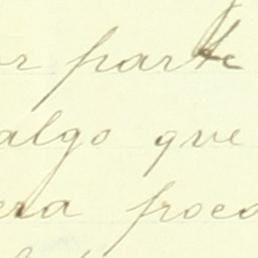 or parte
algo que
era proco